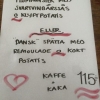 SVARTVINBÄRSSÅS
O KLYFTPOTATIS
ELLER
DANSK SPÄTTA MED
REMOULADE O KOKT
POTATIS
KAFFE
+
KAKA
115:-